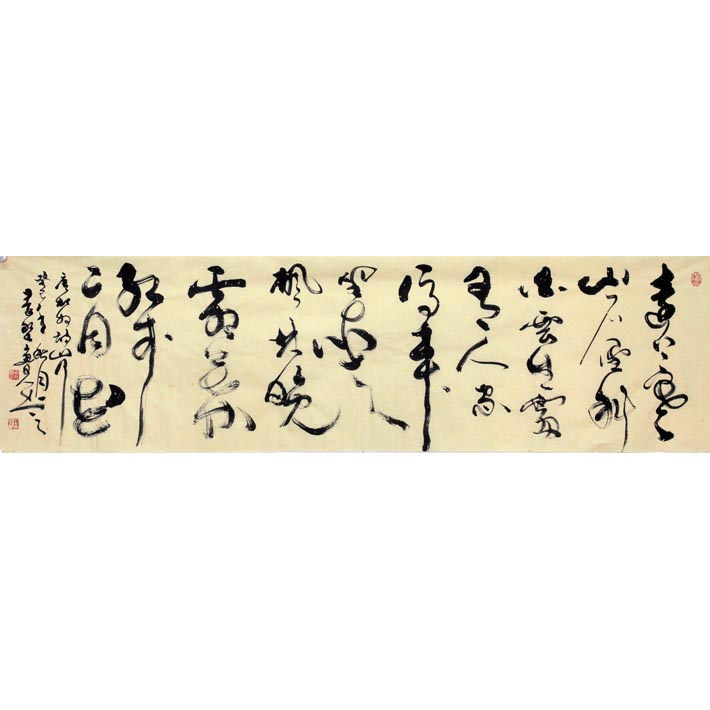 遠上寒
山石徑斜
白雲生處
有人家
停車
坐愛
楓林晚
霜葉
紅於
二月花
唐杜牧詩山行
癸巳年秋月